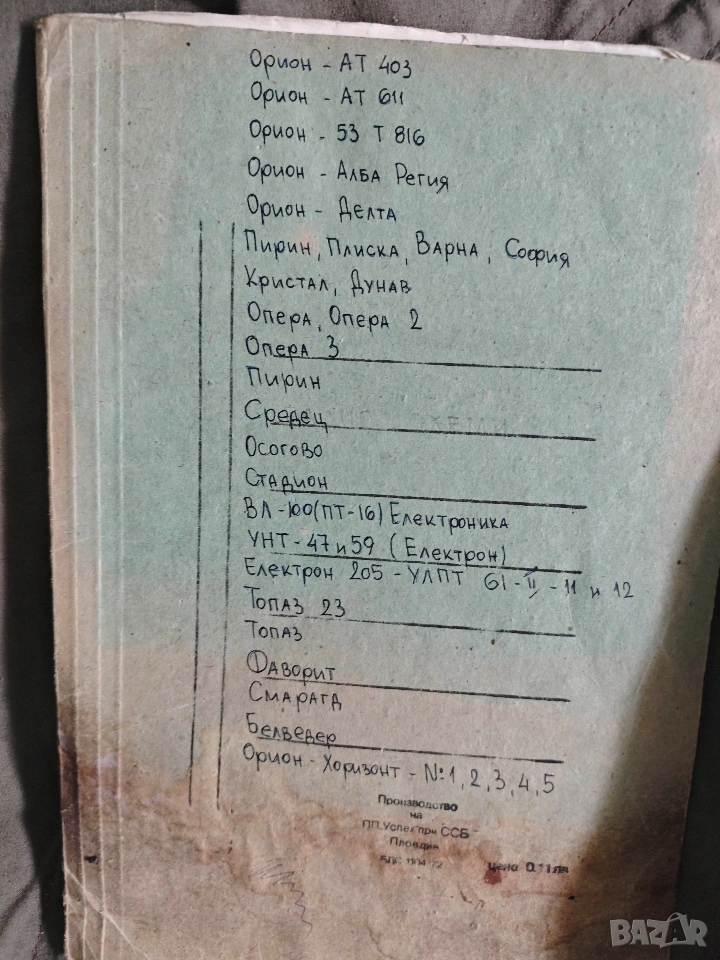 Орион - АТ 403
Орион - АТ 611
Орион - 53 Т 816
Орион - Алба Регия
Орион - Делта
Пирин, Плиска, Варна, София
Кристал, Дунав
Опера, Опера 2
Опера 3
Пирин
Средец
Осогово
Стадион
ВЛ-100(ПТ-16) Електроника
УНТ-47 и 59 (Електрон)
Електрон 205 - УЛПТ 61-II-11 и 12
Топаз 23
Топаз
Фаворит
Смарагд
Белведер
Орион - Хоризонт - №1, 2, 3, 4, 5
Производство
на
ПП. Успех при ССБ
Пловдив
БДС
цена 0.11 лв
BAZAR